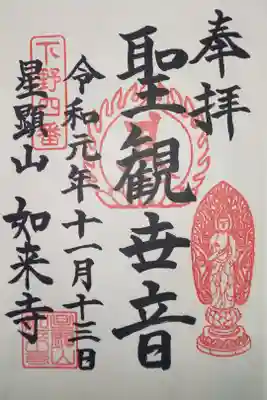 奉拝
聖観世音
令和元年十一月十三日
下野四番
星顕山
如来寺